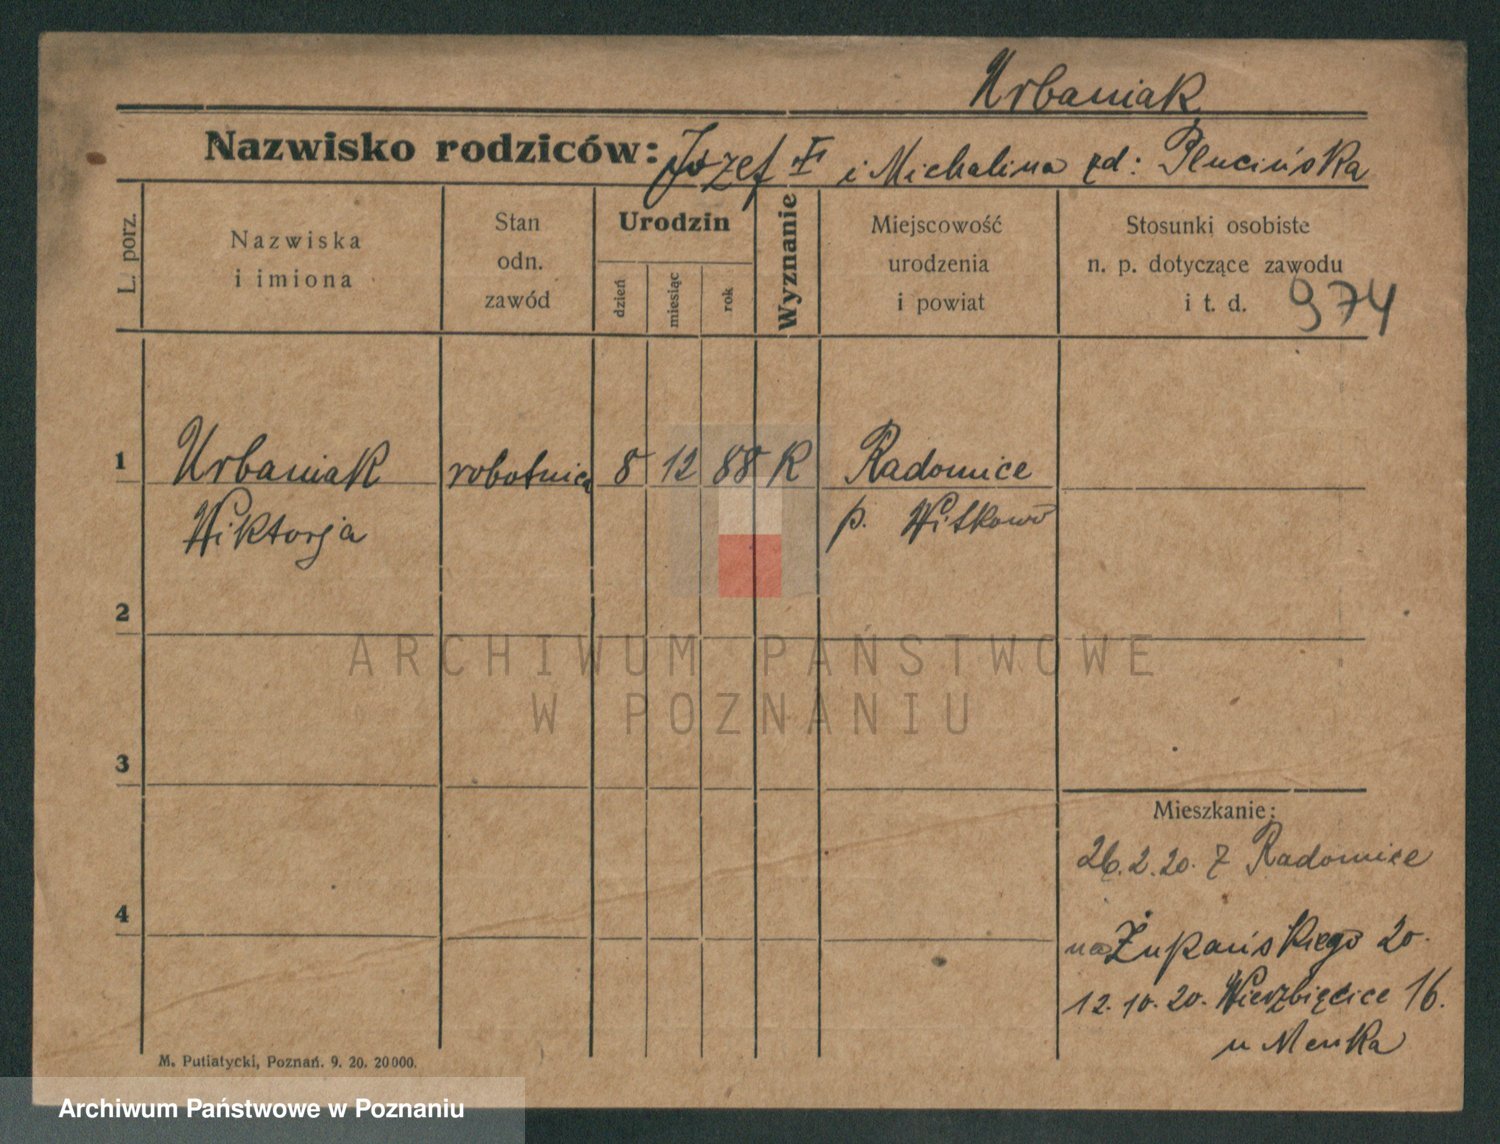 Urbaniak
Nazwisko rodziców: Józef † i Michalina zd: Plucińska
L. porz.
Nazwiska
i imiona
Stan
odn.
zawód
Urodzin
dzień
miesiąc
rok
Wyznanie
Miejscowość
urodzenia
i powiat
Stosunki osobiste
n. p. dotyczące zawodu
i t. d.
974
1 Urbaniak robotnica 8 12 88 R Radomice
Wiktorja p. Witkowo
2
ARCHIWUM PAŃSTWOWE
W POZNANIU
3
Mieszkanie:
26.2.20. z Radomice
4
na Żupańskiego 20.
12.10.20. Wierzbięcice 16.
u Menka
M. Putiatycki, Poznań. 9. 20. 20000.
Archiwum Państwowe w Poznaniu